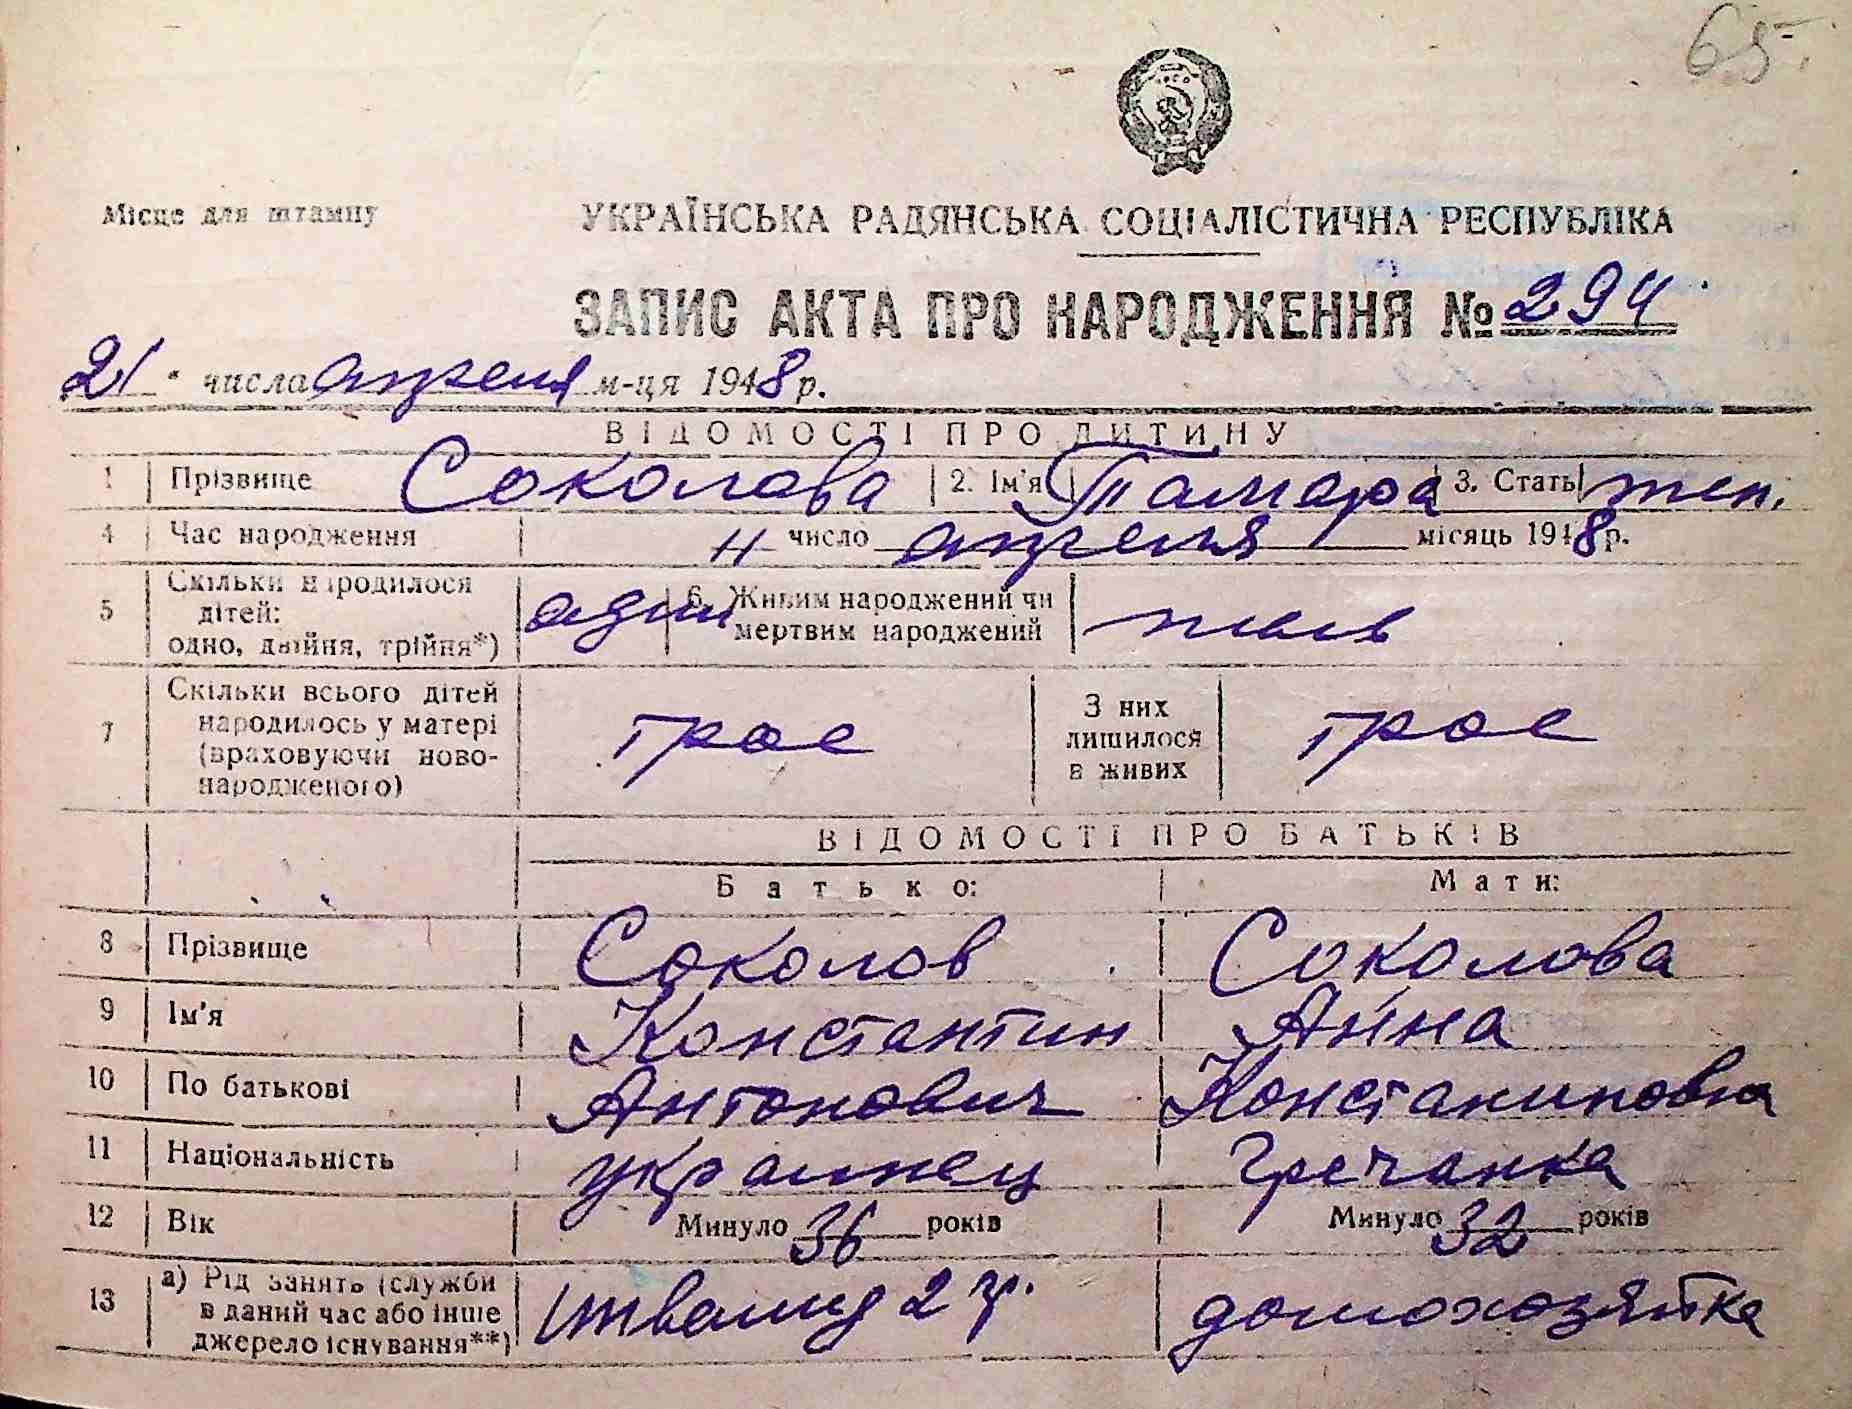 65
Місце для штампу
УКРАЇНСЬКА РАДЯНСЬКА СОЦІАЛІСТИЧНА РЕСПУБЛІКА
ЗАПИС АКТА ПРО НАРОДЖЕННЯ № 294
21 числа апреля м-ця 1948 р.
ВІДОМОСТІ ПРО ДИТИНУ
1 Прізвище Соколова 2. Ім'я Тамара 3. Стать жен.
4 Час народження 11 число апреля місяць 1948 р.
5 Скільки народилося дітей: одно, двійня, трійня*) один 6. Живим народжений чи мертвим народжений жив
7 Скільки всього дітей народилось у матері (враховуючи новонародженого) трое З них лишилося в живих трое
ВІДОМОСТІ ПРО БАТЬКІВ
Батько: Мати:
8 Прізвище Соколов Соколова
9 Ім'я Константин Анна
10 По батькові Антонович Констаниновна
11 Національність украинец гречанка
12 Вік Минуло 36 років Минуло 32 років
13 а) Рід занять (служби в даний час або інше джерело існування**) инвалид 2 гр. домохозяйка